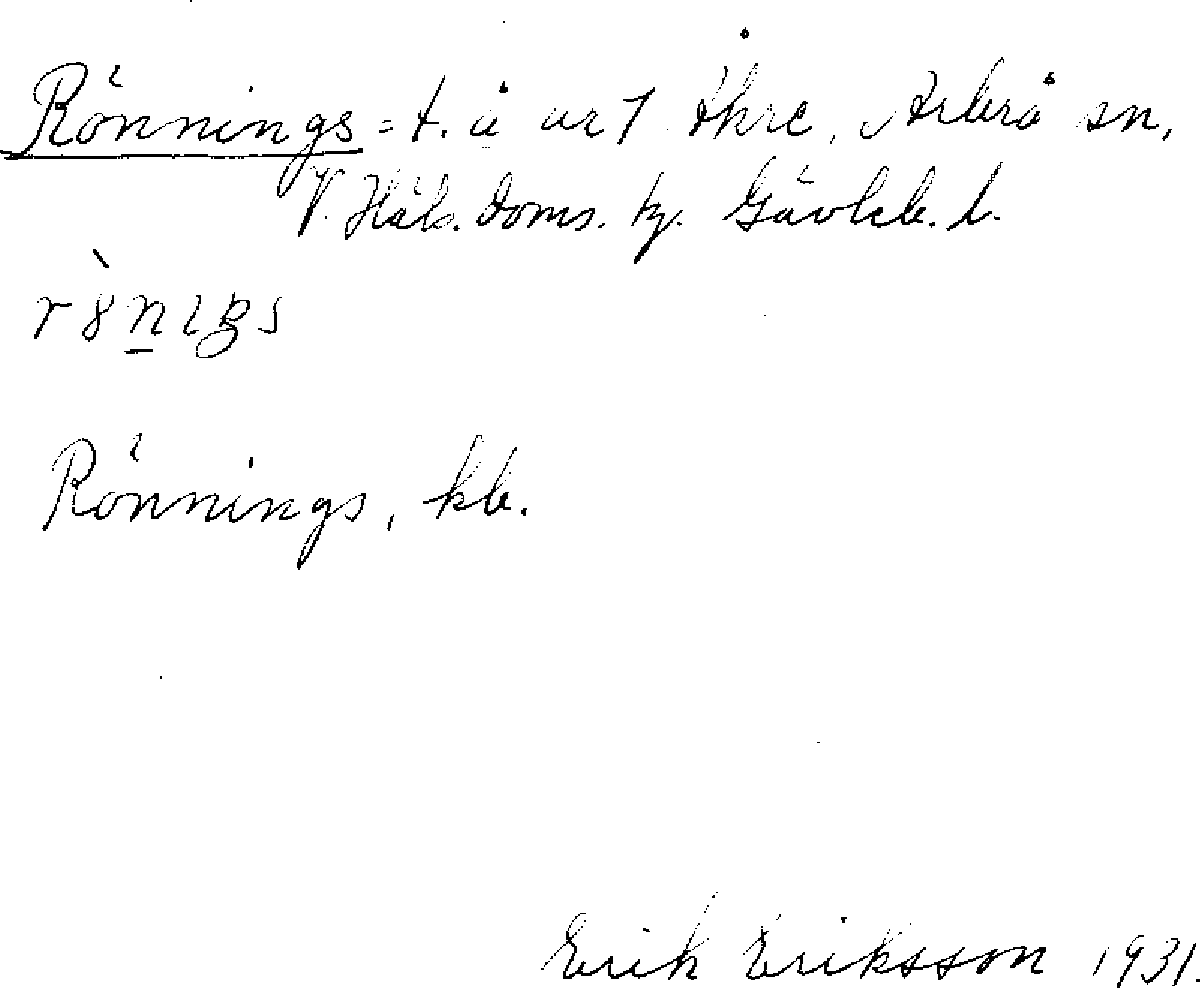 Rönnings = t. å nr 1 Åkre, Arbrå sn,
V. Häls. doms. tg. Gävleb. l.
Rönnings, kb.
Erik Eriksson 1931.